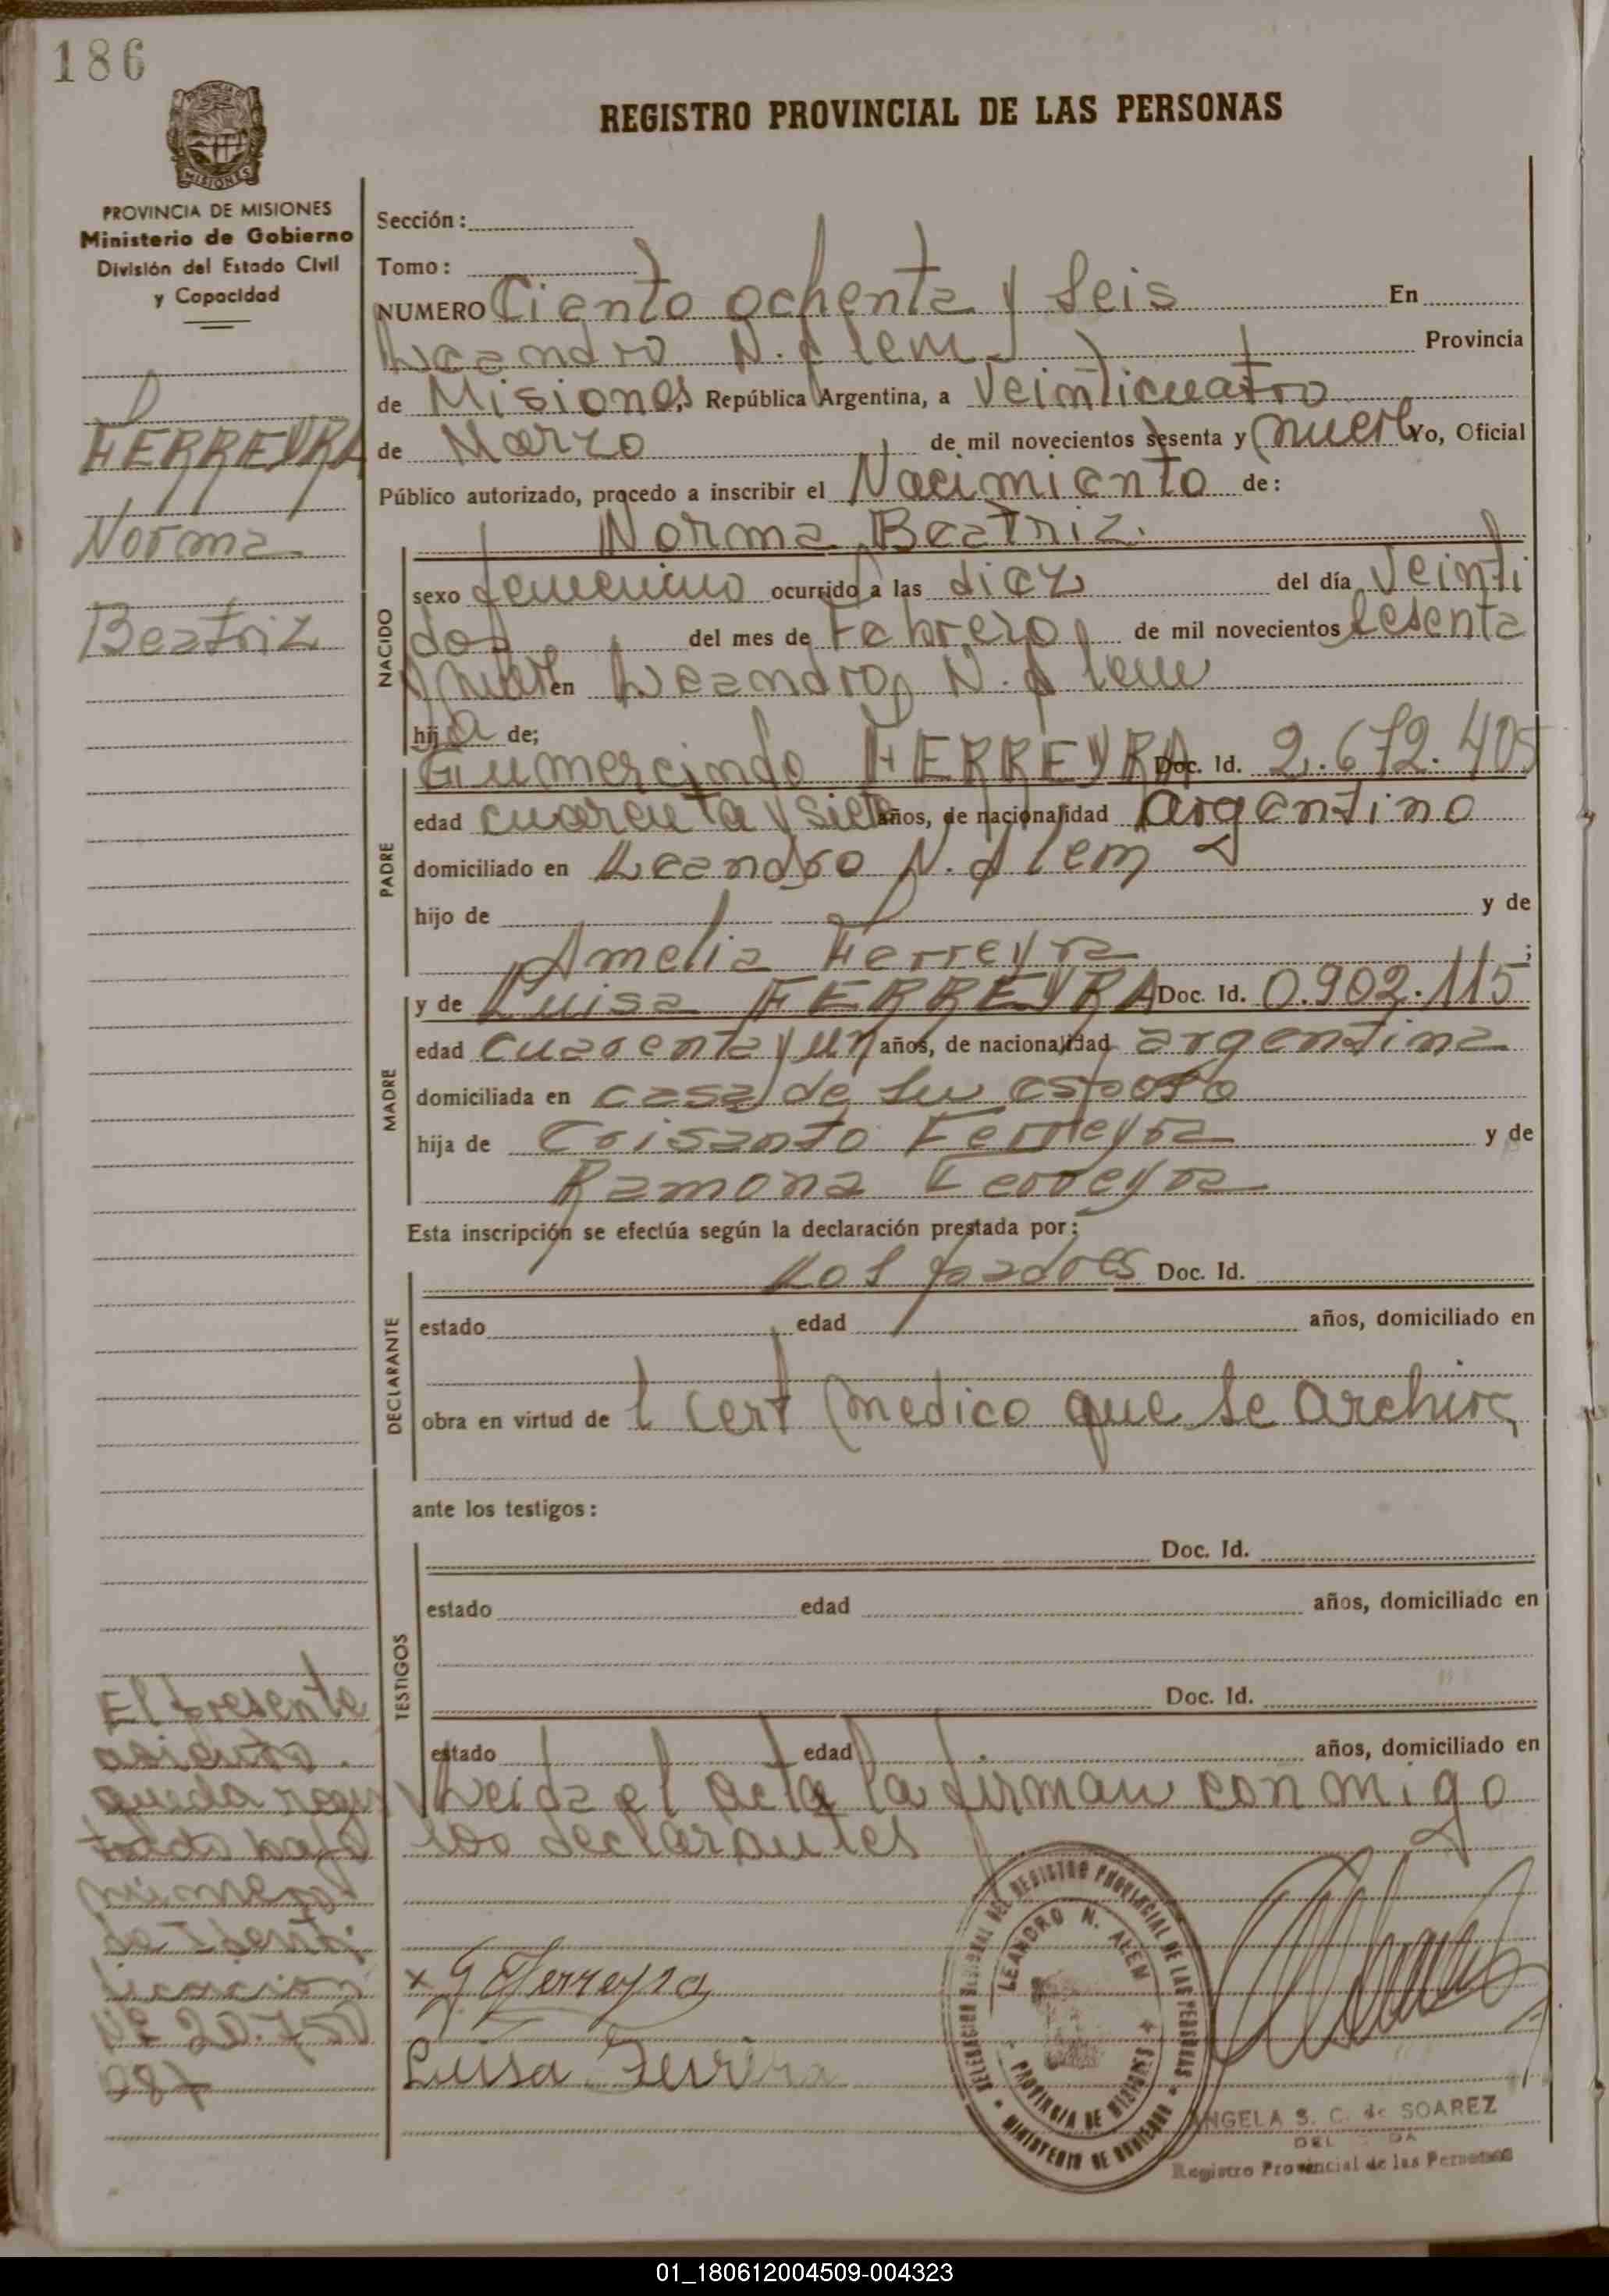 186
REGISTRO PROVINCIAL DE LAS PERSONAS
PROVINCIA DE MISIONES
MISIONES
Ministerio de Gobierno
División del Estado Civil
y Capacidad
FERREYRA
Norma
Beatriz
Sección:
Tomo:
NUMERO Ciento ochenta y Seis En
Leandro N. Alem Provincia
de Misiones República Argentina, a Veinticuatro
de Marzo de mil novecientos sesenta y nueve Yo, Oficial
Público autorizado, procedo a inscribir el Nacimiento de:
Norma Beatriz.
NACIDO
sexo femenino ocurrido a las diez del día Veinti
dos del mes de Febrero de mil novecientos Sesenta
y nueve en Leandro N. Alem
hija de;
PADRE
Gumercindo FERREYRA Doc. Id. 2.672.405
edad cuarenta y siete años, de nacionalidad argentino
domiciliado en Leandro N. Alem
hijo de y de
Amelia Ferreyra ;
MADRE
y de Luisa FERREYRA Doc. Id. 0.902.115
edad cuarenta y un años, de nacionalidad argentina
domiciliada en casa de su esposo
hija de Crisanto Ferreyra y de
Ramona Ferreyra
Esta inscripción se efectúa según la declaración prestada por:
DECLARANTE
Los padres Doc. Id.
estado edad años, domiciliado en
obra en virtud de l cert medico que se archiva
ante los testigos:
TESTIGOS
Doc. Id.
estado edad años, domiciliado en
Doc. Id.
estado edad años, domiciliado en
Leida el acta la firman con migo
los declarantes
El presente
asiento
queda regis
trado bajo
numero
de Identi
ficacion
Nº 20.750
087
x G Ferreyra
Luisa Ferrira
DELEGACION REGIONAL DEL REGISTRO PROVINCIAL DE LAS PERSONAS
LEANDRO N. ALEM
PROVINCIA DE MISIONES
MINISTERIO DE GOBIERNO
ANGELA S. C. de SOAREZ
Registro Provincial de las Personas
01_180612004509-004323